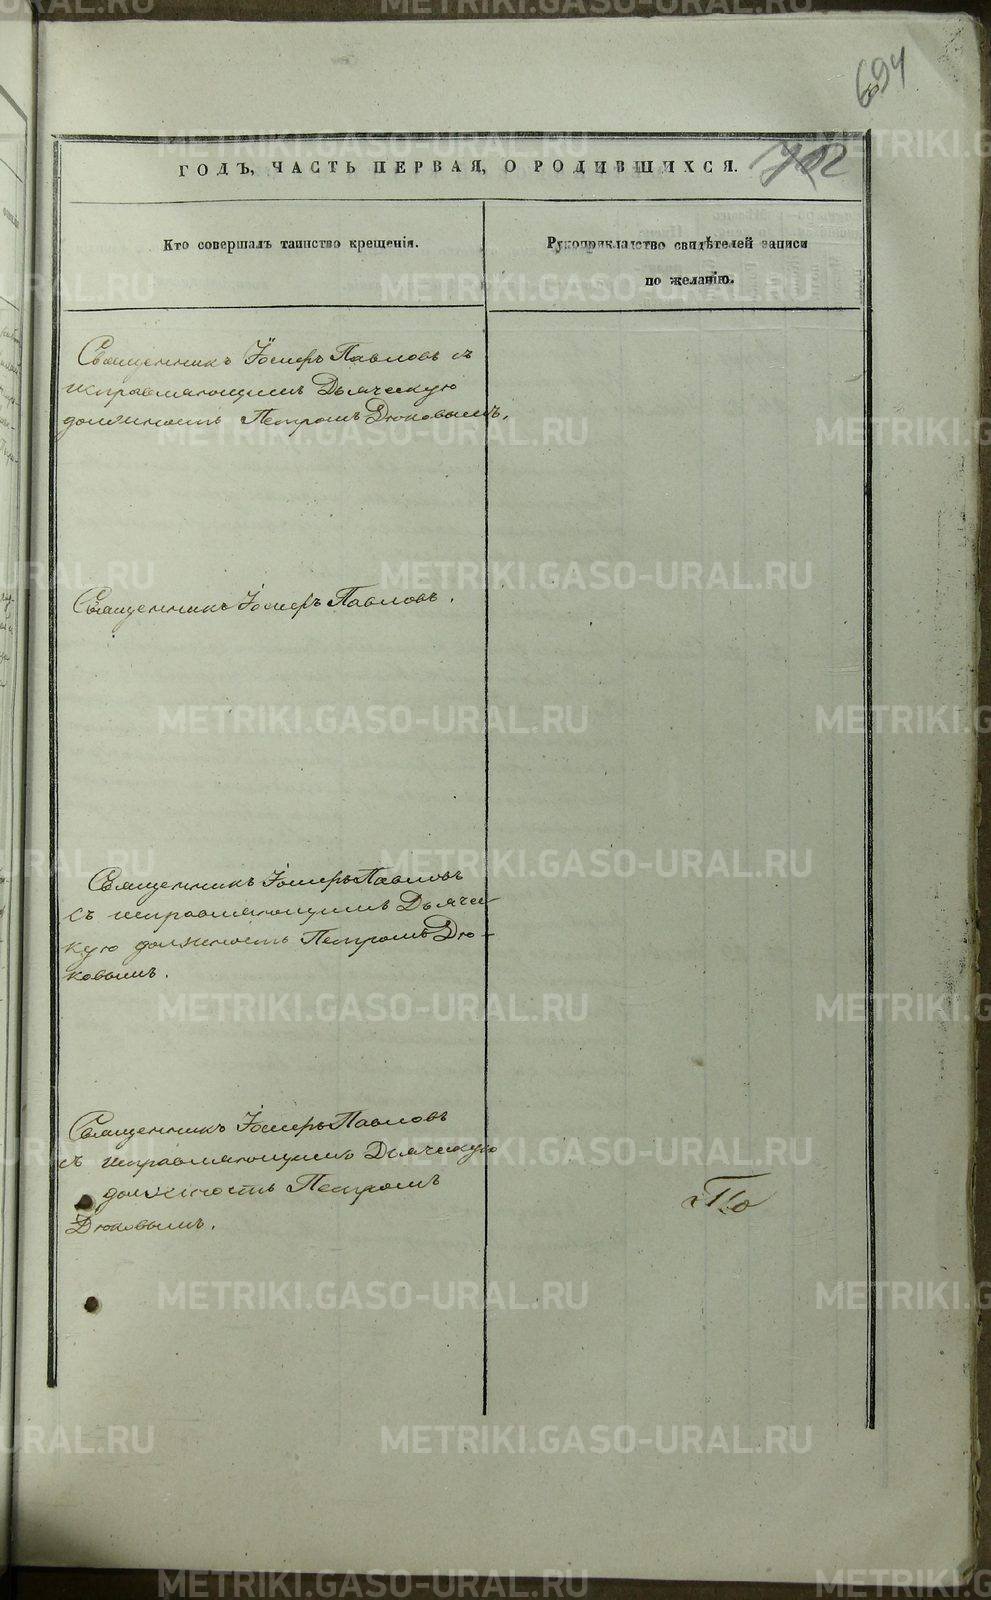 694
ГОДЪ, ЧАСТЬ ПЕРВАЯ, О РОДИВШИХСЯ.
702
Кто совершалъ таинство крещенія.
Рукоприкладство свидѣтелей записи
по желанію.
Священникъ Іосифъ Павловъ съ
исправляющимъ Дьяческую
должность Петромъ Дюковымъ.
Священникъ Іосифъ Павловъ.
Священникъ Іосифъ Павловъ
съ исправляющимъ Дьячес-
кую должность Петромъ Дю-
ковымъ.
Священникъ Іосифъ Павловъ
съ исправляющимъ Дьяческую
должность Петромъ
Дюковымъ.
По
METRIKI.GASO-URAL.RU